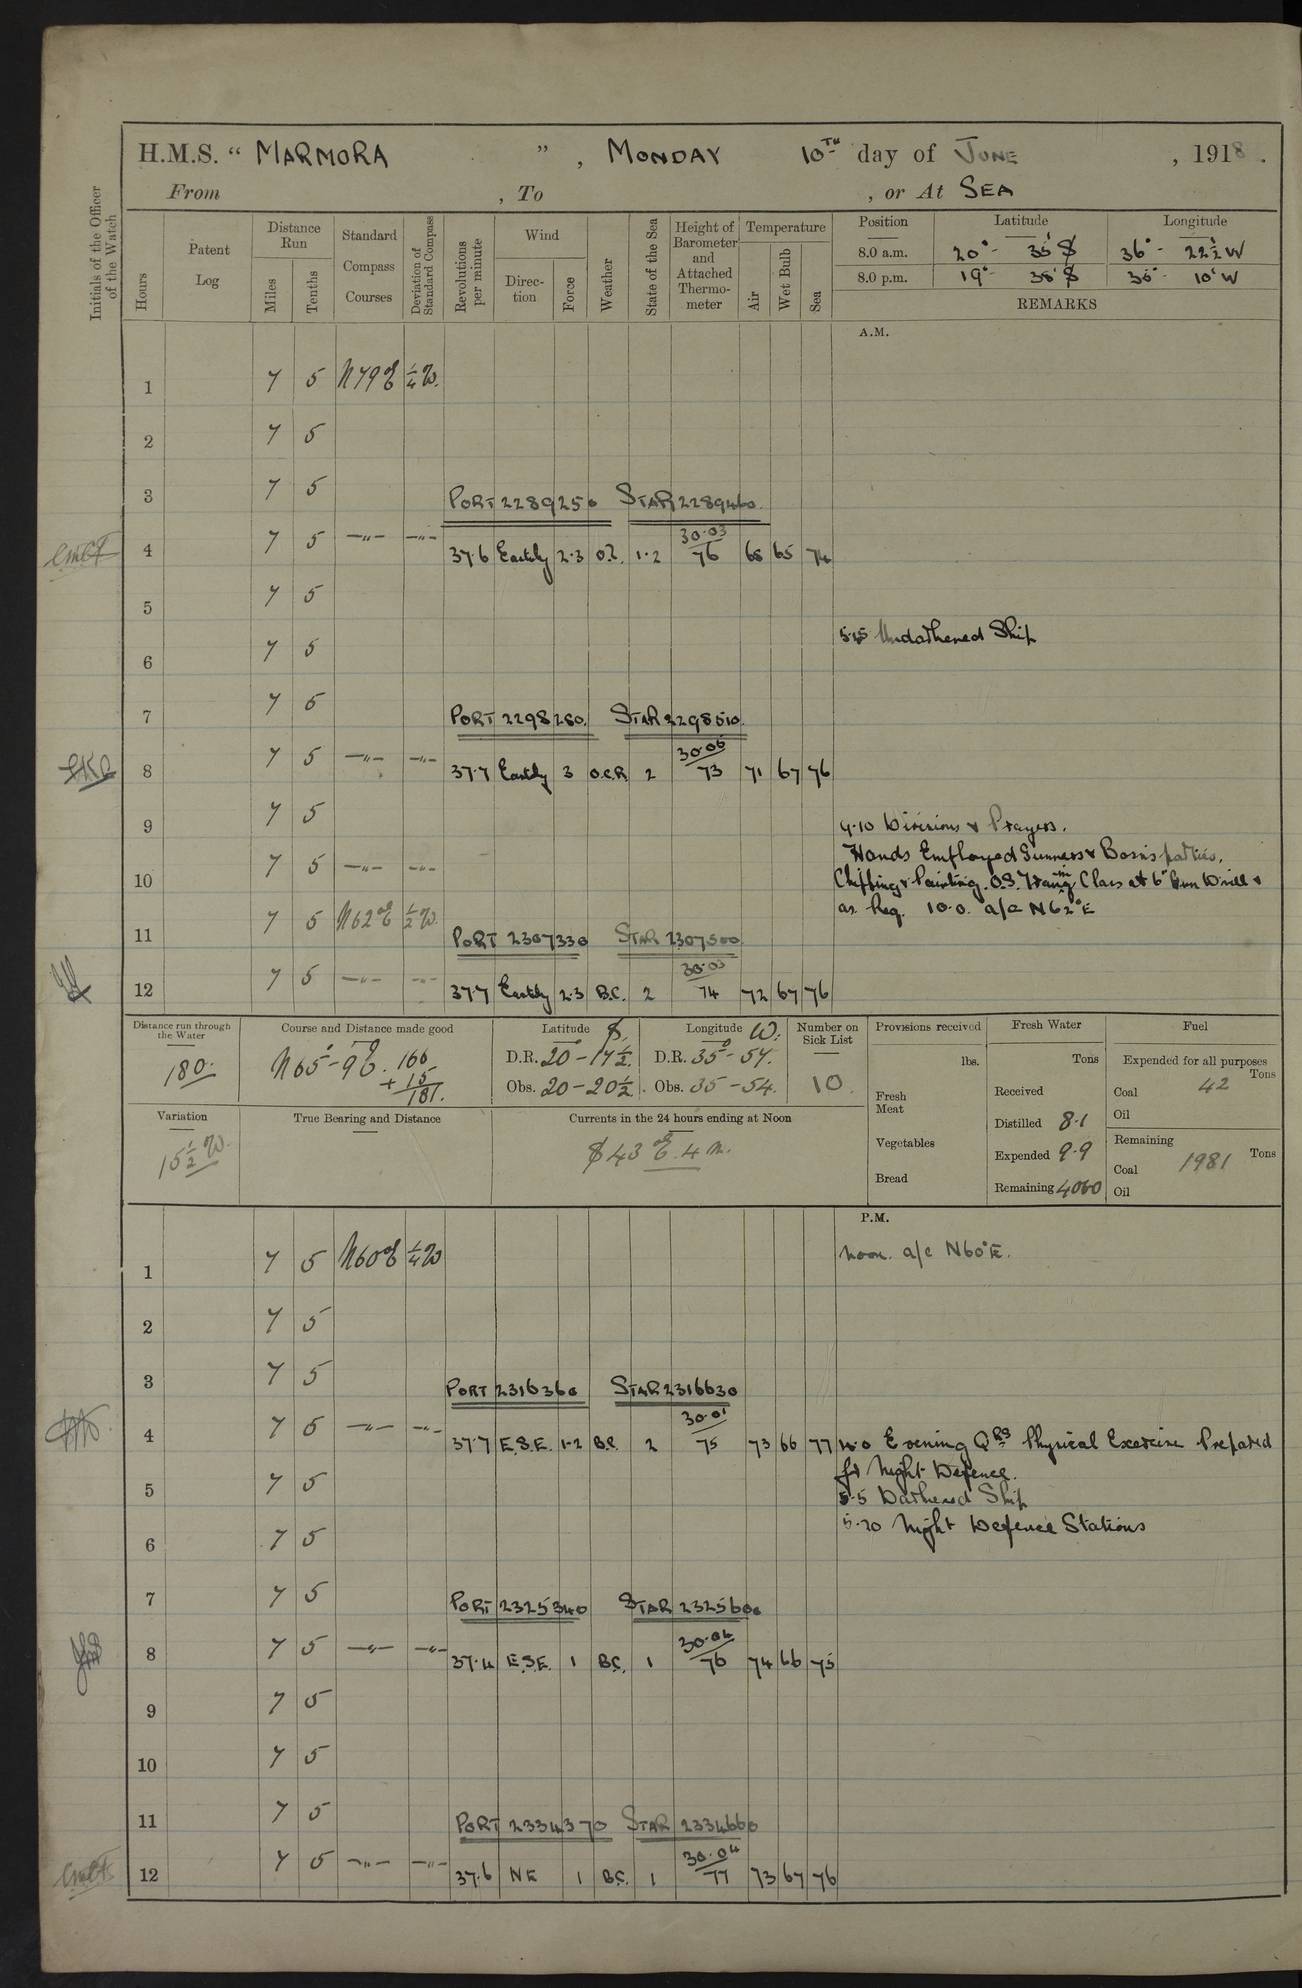 H.M.S. “ MARMORA ” , MONDAY 10TH day of JUNE , 1918 .
From , To , or At SEA
Initials of the Officer of the Watch
Hours
Patent Log
Distance Run
Miles
Tenths
Standard Compass Courses
Deviation of Standard Compass
Revolutions per minute
Wind
Direction
Force
Weather
State of the Sea
Height of Barometer and Attached Thermometer
Temperature
Air
Wet Bulb
Sea
Position Latitude Longitude
8.0 a.m. 20° - 35' S 36° - 22½' W
8.0 p.m. 19° - 38' S 35° - 10' W
REMARKS
A.M.
1 7 5 N79°E ¼W.
2 7 5
3 7 5
PORT 2289250 STAR 2289460.
4 7 5 –"– –"– 37.6 Eastly 2.3 1.2 30.03/76 68 65 74
5 7 5
6 7 5
5.15 Undarkened Ship
7 7 5
PORT 2298280. STAR 2298510.
8 7 5 –"– –"– 37.7 Eastly 3 O.C.R. 2 30.05/73 71 67 76
9 7 5
9.10 Divisions & Prayers.
10 7 5 –"– –"–
Hands Employed Gunners & Bosn's parties.
Chipping & Painting. O.S. Traing Class at 6" Gun Drill &
as Req. 10.0. a/c N62°E
11 7 5 N62°E ½W.
PORT 2307330 STAR 2307500
12 7 5 –"– –"– 37.7 Eastly 2.3 B.C. 2 30.03/74 72 67 76
Distance run through the Water
180.
Course and Distance made good
N65°-9'E. 166
+ 15
181.
Latitude S. Longitude W.
D.R. 20°-17½. D.R. 35°-57.
Obs. 20-20½. Obs. 35-54.
Number on Sick List
10.
Provisions received
lbs.
Fresh Meat
Vegetables
Bread
Fresh Water
Tons
Received
Distilled 8.1
Expended 9.9
Remaining 4060
Fuel
Expended for all purposes
Tons
Coal 42
Oil
Remaining
Tons
Coal 1981
Oil
Variation
15½ W.
True Bearing and Distance
Currents in the 24 hours ending at Noon
S 43°E. 4 m.
P.M.
1 7 5 N60°E ¼W
Noon. a/c N60°E.
2 7 5
3 7 5
PORT 2316360 STAR 2316630
4 7 5 –"– –"– 37.7 E.S.E. 1-2 B.C. 2 30.01/75 73 66 77
4.0 Evening QRS Physical Exercise Prepared
for Night Defence.
5 7 5
5.5 Darkened Ship
5.20 Night Defence Stations
6 7 5
7 7 5
PORT 2325340 STAR 2325600
8 7 5 –"– –"– 37.4 E.S.E. 1 B.C. 1 30.04/76 74 66 75
9 7 5
10 7 5
11 7 5
PORT 2334370 STAR 2334660
12 7 5 –"– –"– 37.6 NE 1 B.C. 1 30.04/77 73 67 76